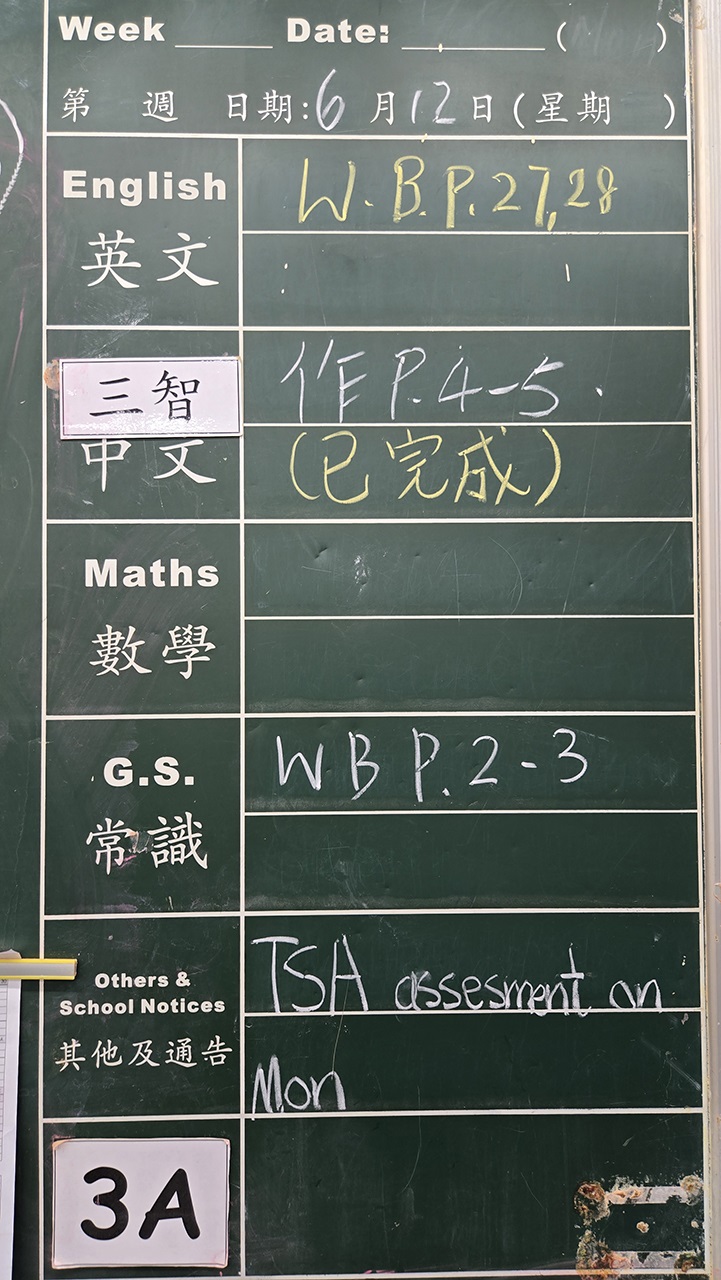 Week ____ Date: ______ ( )
第 週 日期:6月12日(星期 )
English W.B.P.27,28
英文
三智 作 P.4-5.
中文 (已完成)
Maths
數學
G.S. WB P.2-3
常識
Others & TSA assesment on
School Notices
其他及通告 Mon
3A